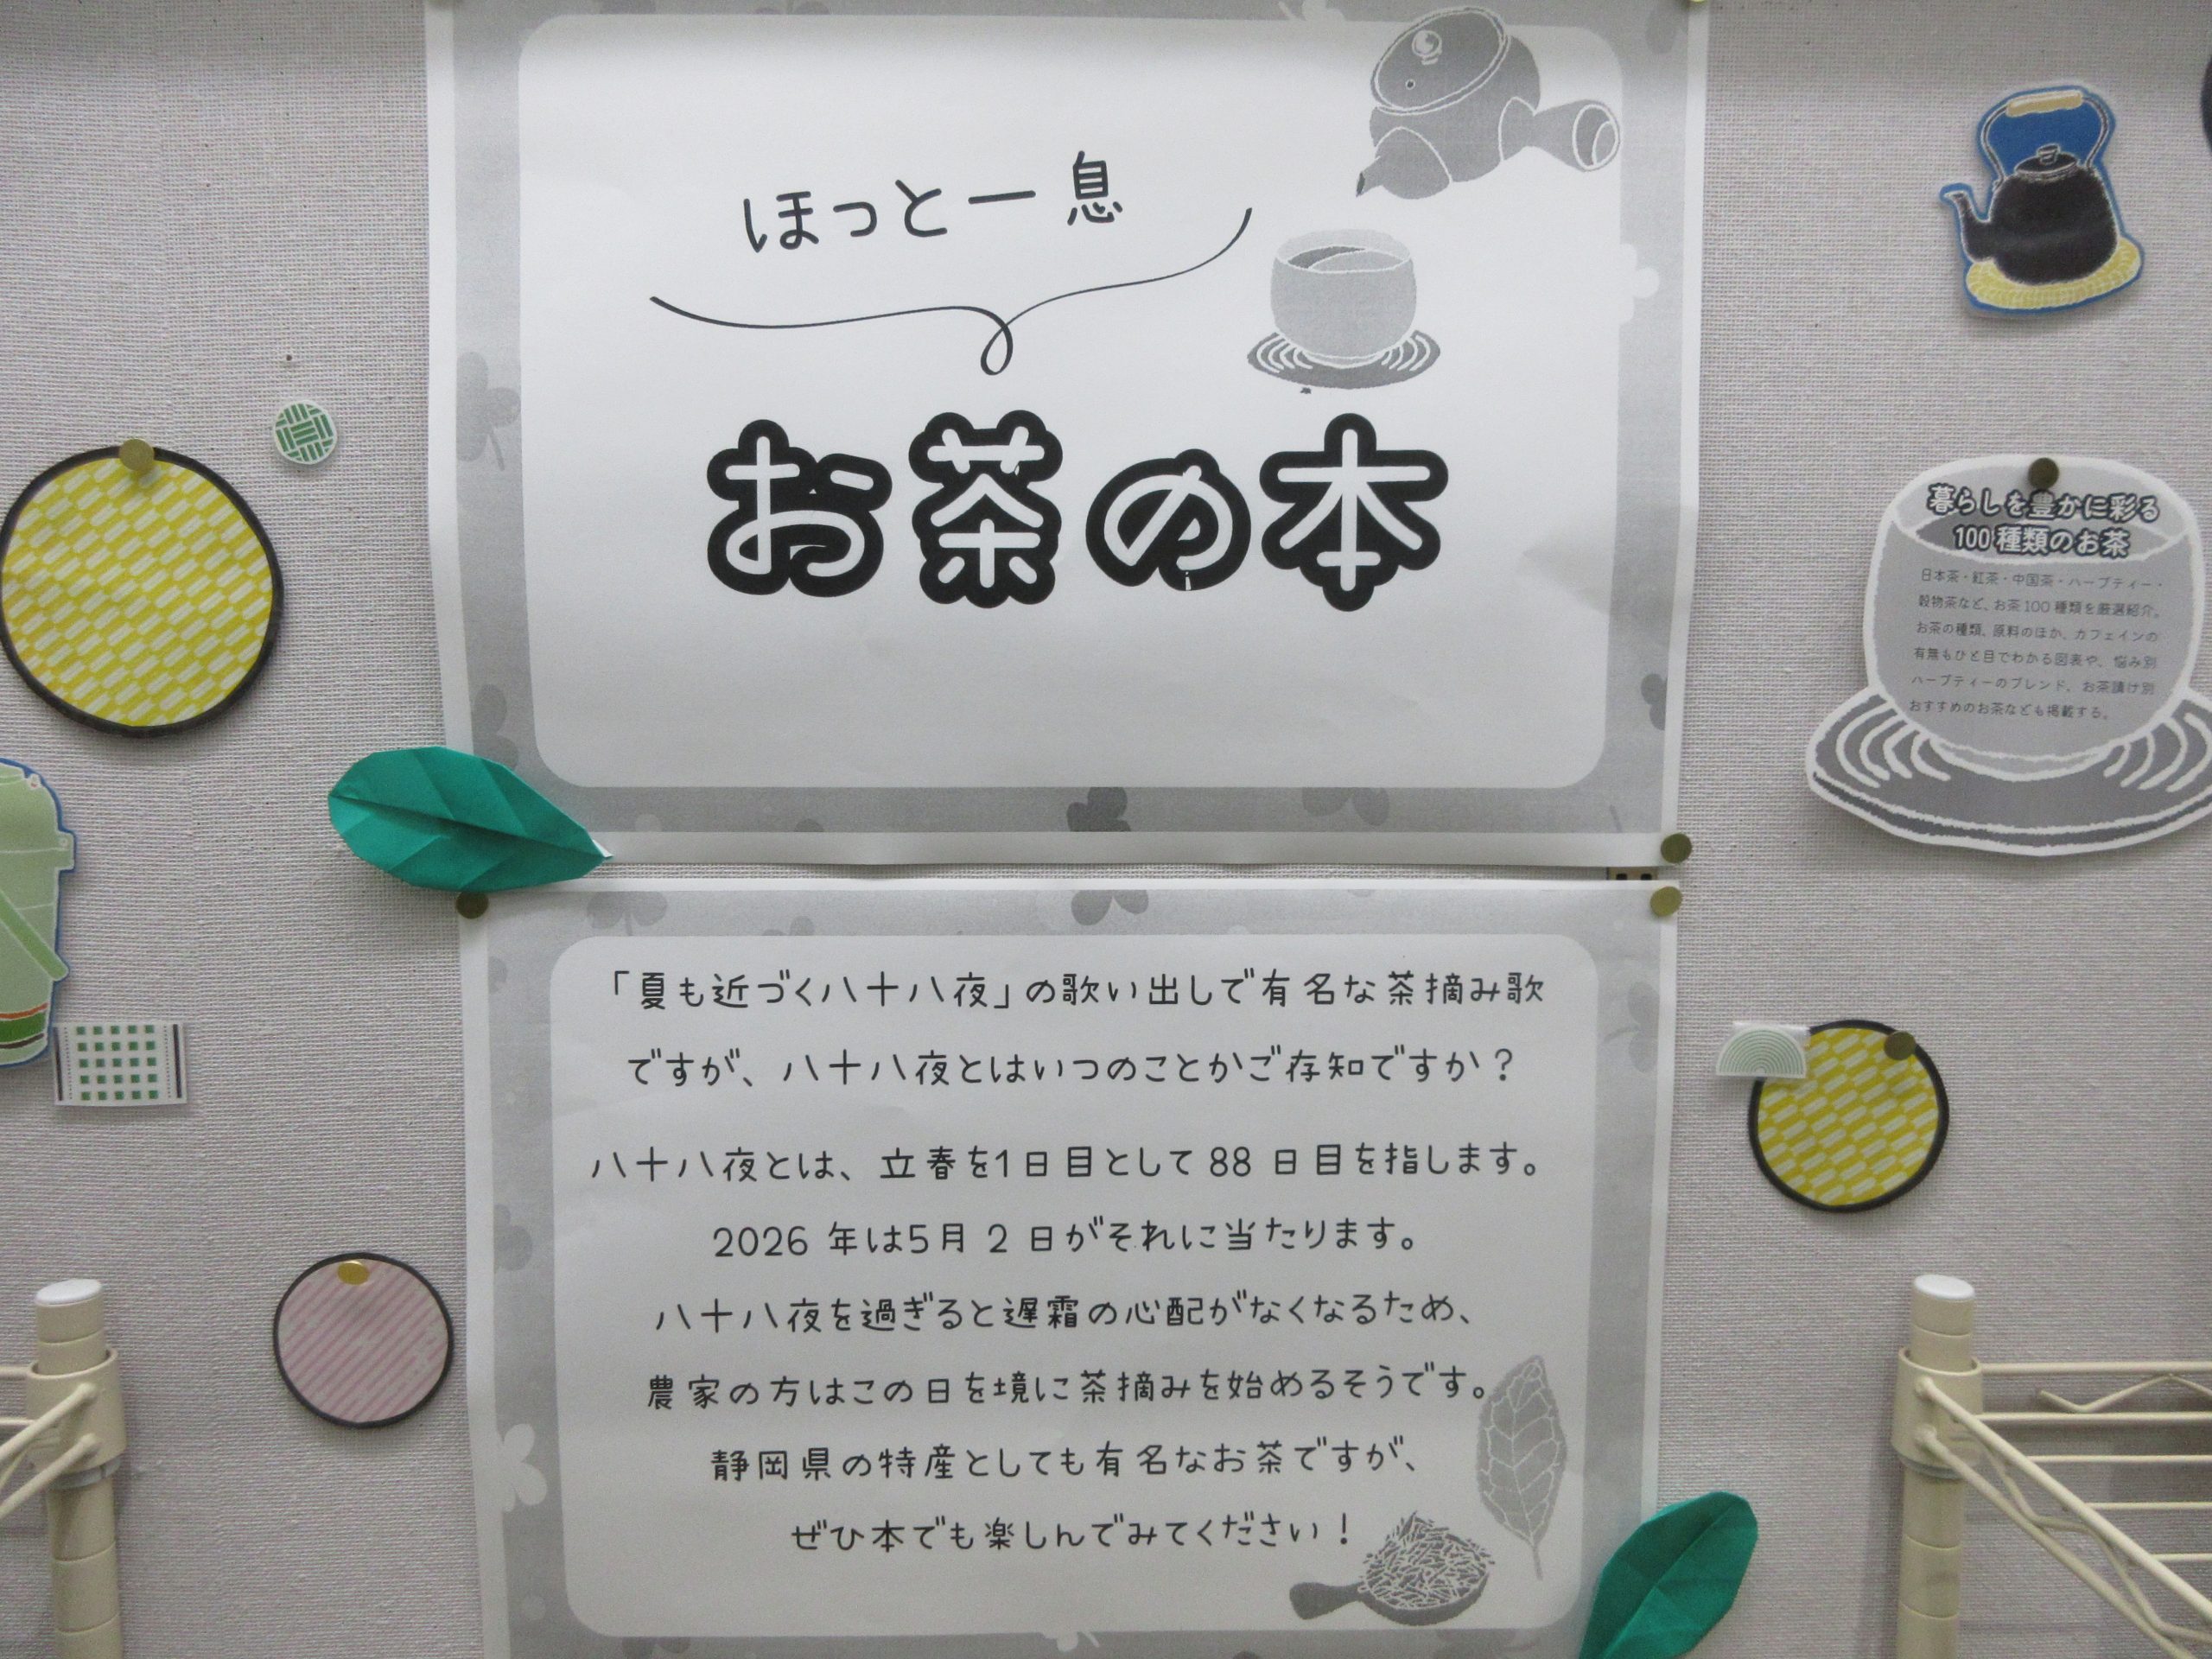 ほっと一息
お茶の本
「夏も近づく八十八夜」の歌い出しで有名な茶摘み歌
ですが、八十八夜とはいつのことかご存知ですか？
八十八夜とは、立春を1日目として88日目を指します。
2026年は5月2日がそれに当たります。
八十八夜を過ぎると遅霜の心配がなくなるため、
農家の方はこの日を境に茶摘みを始めるそうです。
静岡県の特産としても有名なお茶ですが、
ぜひ本でも楽しんでみてください！
暮らしを豊かに彩る
100種類のお茶
日本茶・紅茶・中国茶・ハーブティー・
穀物茶など、お茶100種類を厳選紹介。
お茶の種類、原料のほか、カフェインの
有無もひと目でわかる図表や、悩み別
ハーブティーのブレンド、お茶漬け別
おすすめのお茶なども掲載する。